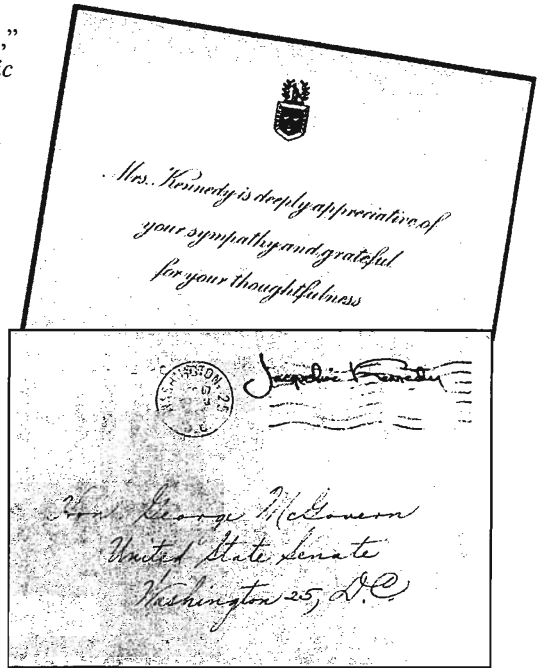 ”
,”
ic
Mrs. Kennedy is deeply appreciative of
your sympathy and grateful
for your thoughtfulness
WASHINGTON 25
Jacqueline Kennedy
Hon George McGovern
United State Senate
Washington 25, D.C.